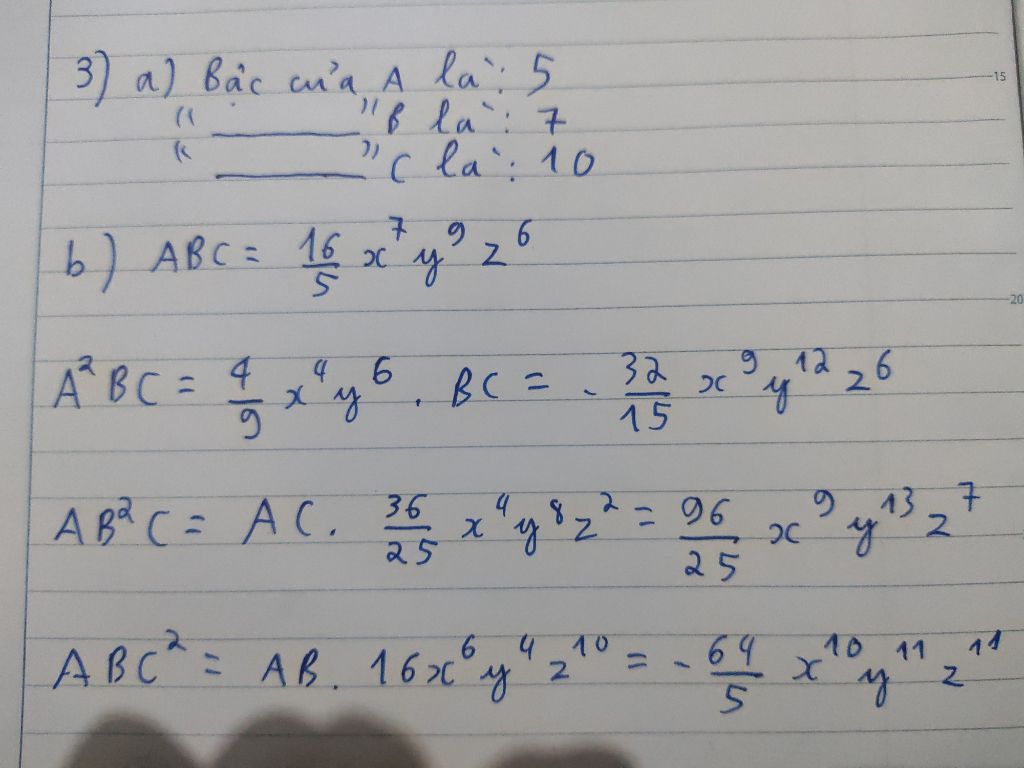 3) a) Bậc của A là: 5
" ——— " B là: 7
" ——— " C là: 10
15
b) ABC = 16/5 x⁷ y⁹ z⁶
20
A² BC = 4/9 x⁴ y⁶ . BC = - 32/15 x⁹ y¹² z⁶
AB² C = AC . 36/25 x⁴ y⁸ z² = 96/25 x⁹ y¹³ z⁷
ABC² = AB . 16x⁶ y⁴ z¹⁰ = - 64/5 x¹⁰ y¹¹ z¹¹